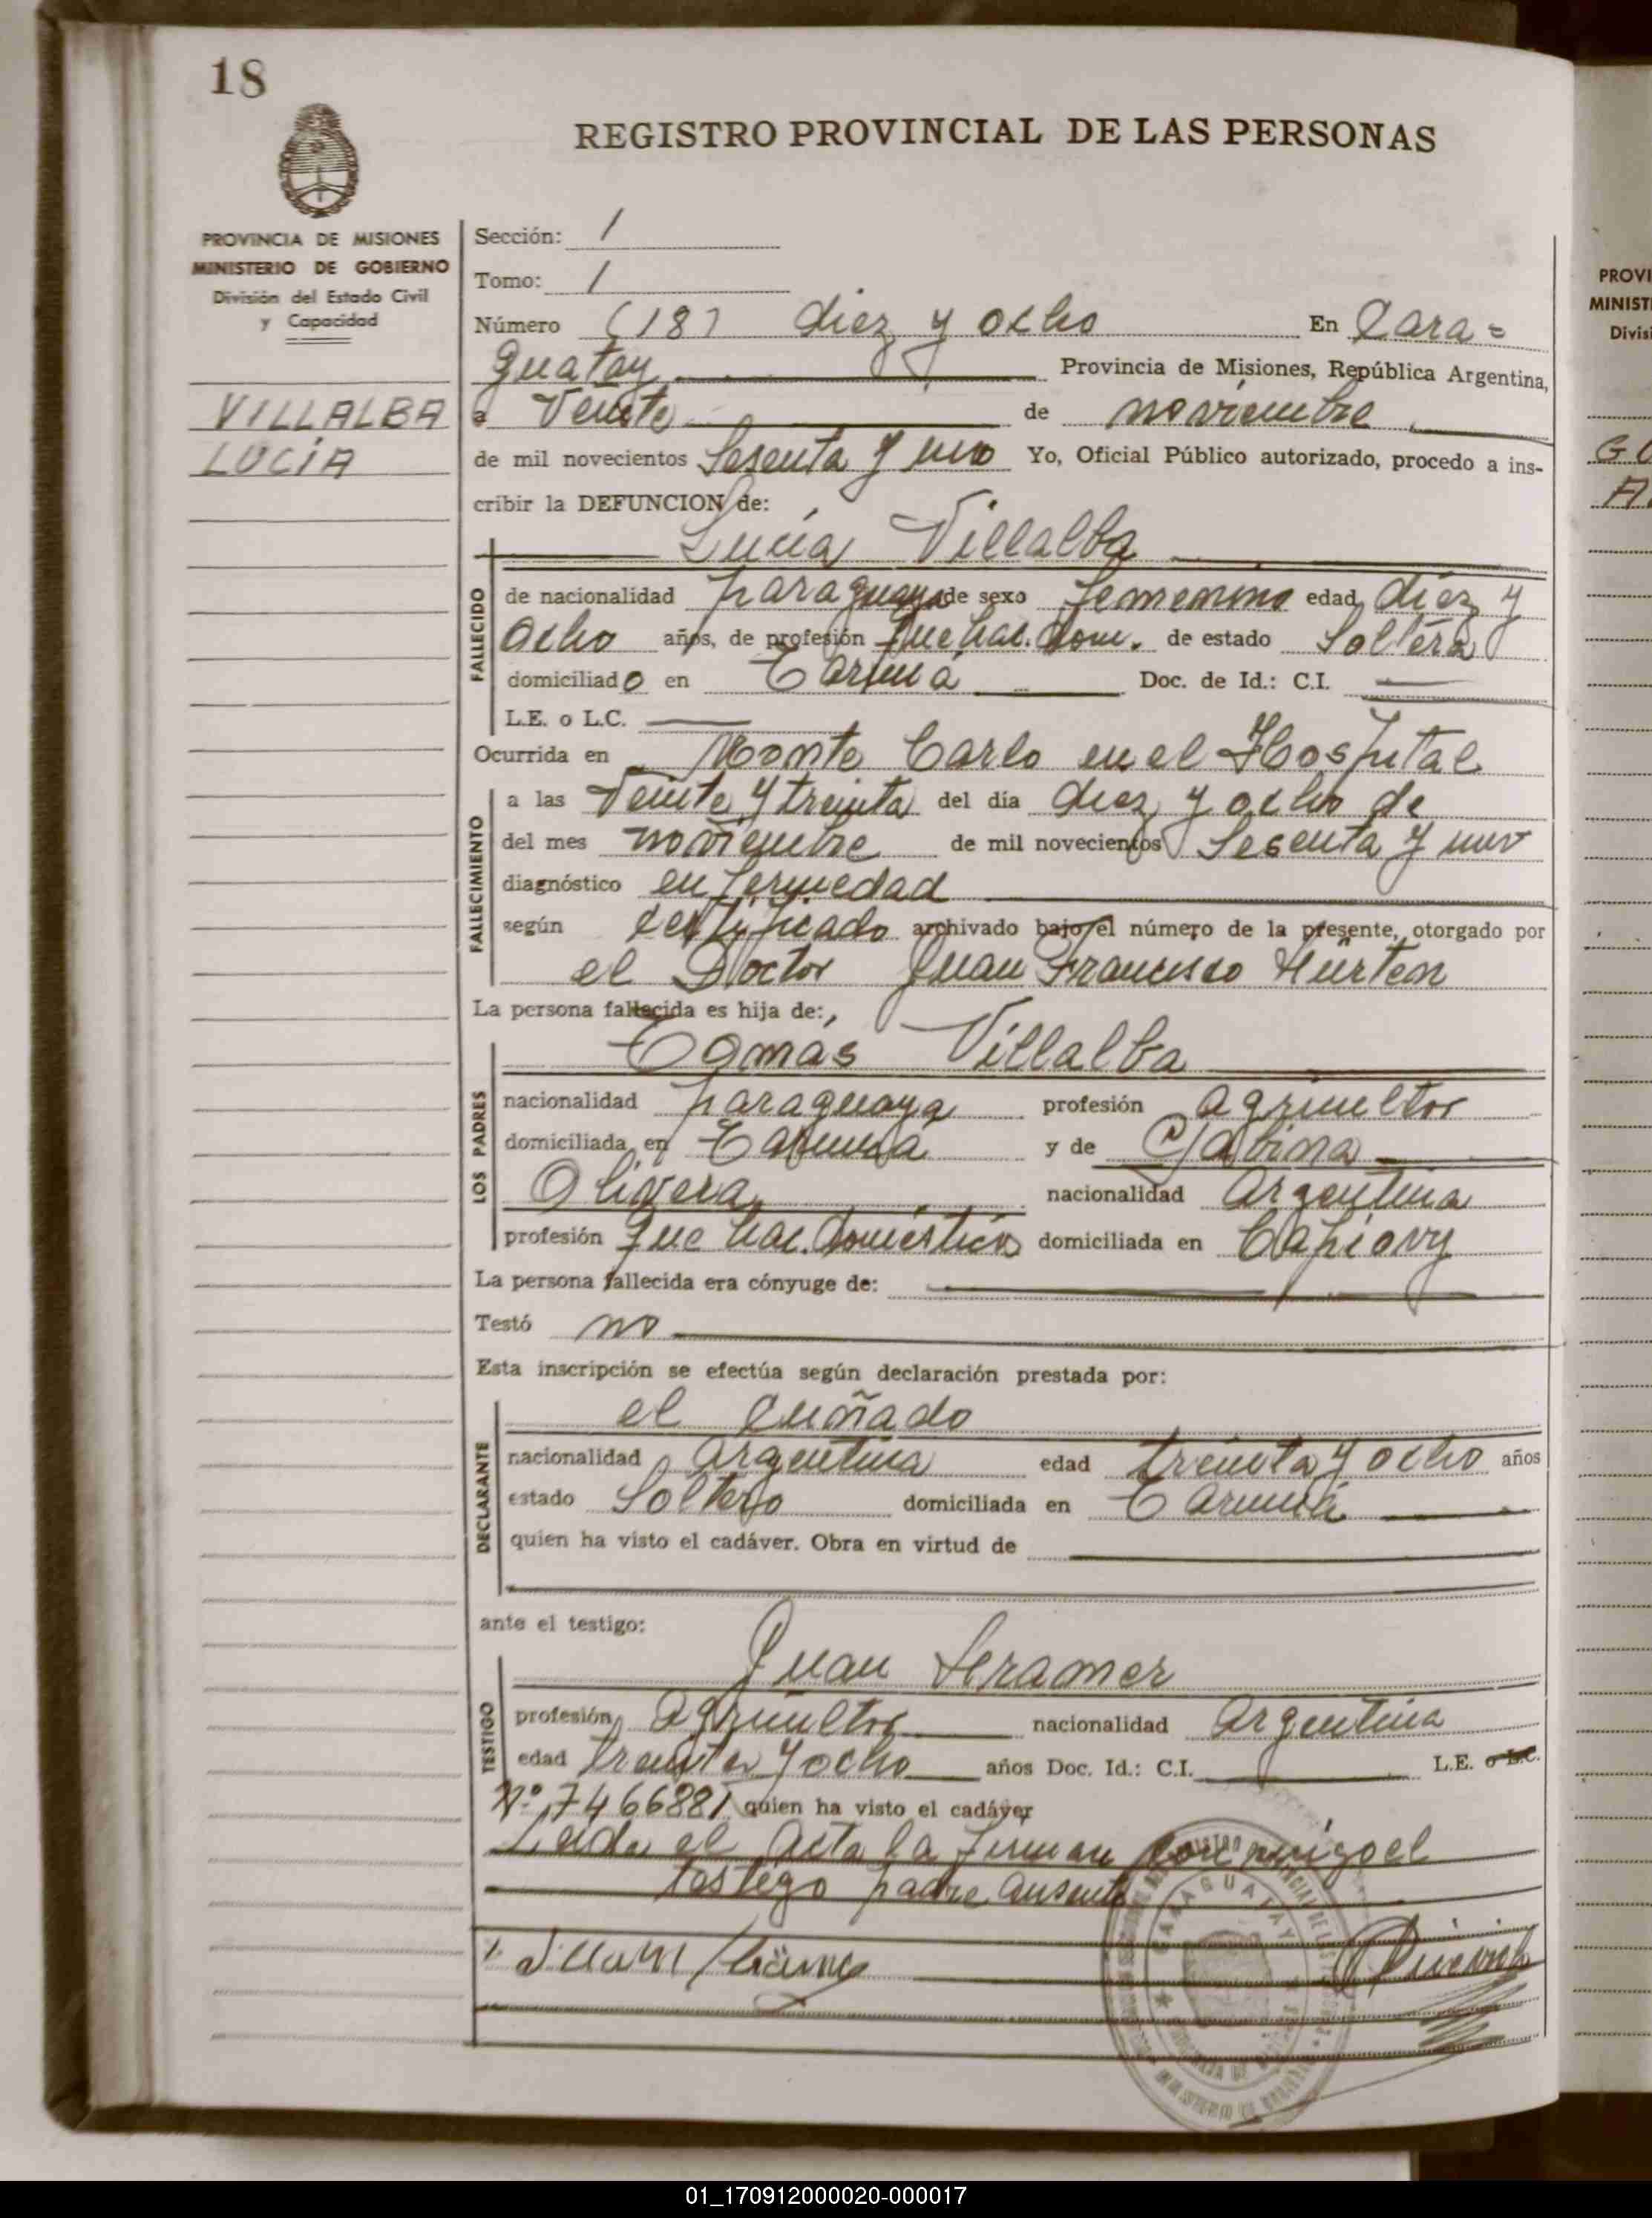 18
REGISTRO PROVINCIAL DE LAS PERSONAS
PROVINCIA DE MISIONES
MINISTERIO DE GOBIERNO
División del Estado Civil
y Capacidad
VILLALBA
LUCÍA
Sección: 1
Tomo: 1
Número (18) diez y ocho En Cara=
guatay Provincia de Misiones, República Argentina,
a Veinte de noviembre
de mil novecientos Sesenta y uno Yo, Oficial Público autorizado, procedo a ins-
cribir la DEFUNCION de:
Lucía Villalba
FALLECIDO
de nacionalidad paraguaya de sexo femenino edad diez y
ocho años, de profesión quehac. dom. de estado Soltera
domiciliado en Tarumá Doc. de Id.: C.I.
L.E. o L.C.
Ocurrida en Monte Carlo en el Hospital
FALLECIMIENTO
a las Veinte y treinta del día diez y ocho de
del mes noviembre de mil novecientos Sesenta y uno
diagnóstico enfermedad
según certificado archivado bajo el número de la presente, otorgado por
el Doctor Juan Francisco Hürten
La persona fallecida es hija de:
Tomás Villalba
LOS PADRES
nacionalidad paraguaya profesión agricultor
domiciliada en Tarumá y de Sabina
Olivera nacionalidad Argentina
profesión quehac. domésticos domiciliada en Capiovy
La persona fallecida era cónyuge de:
Testó no
Esta inscripción se efectúa según declaración prestada por:
el cuñado
DECLARANTE
nacionalidad argentina edad treinta y ocho años
estado Soltero domiciliada en Tarumá
quien ha visto el cadáver. Obra en virtud de
ante el testigo:
Juan
TESTIGO
profesión agricultor nacionalidad argentina
edad treinta y ocho años Doc. Id.: C.I. L.E. o L.C.
Nº 7466881 quien ha visto el cadáver
Leida el Acta la firman conmigo el
testigo padre ausente
CARAGUATAY
PROVI
MINIST
Divisi
GO
A
01_170912000020-000017